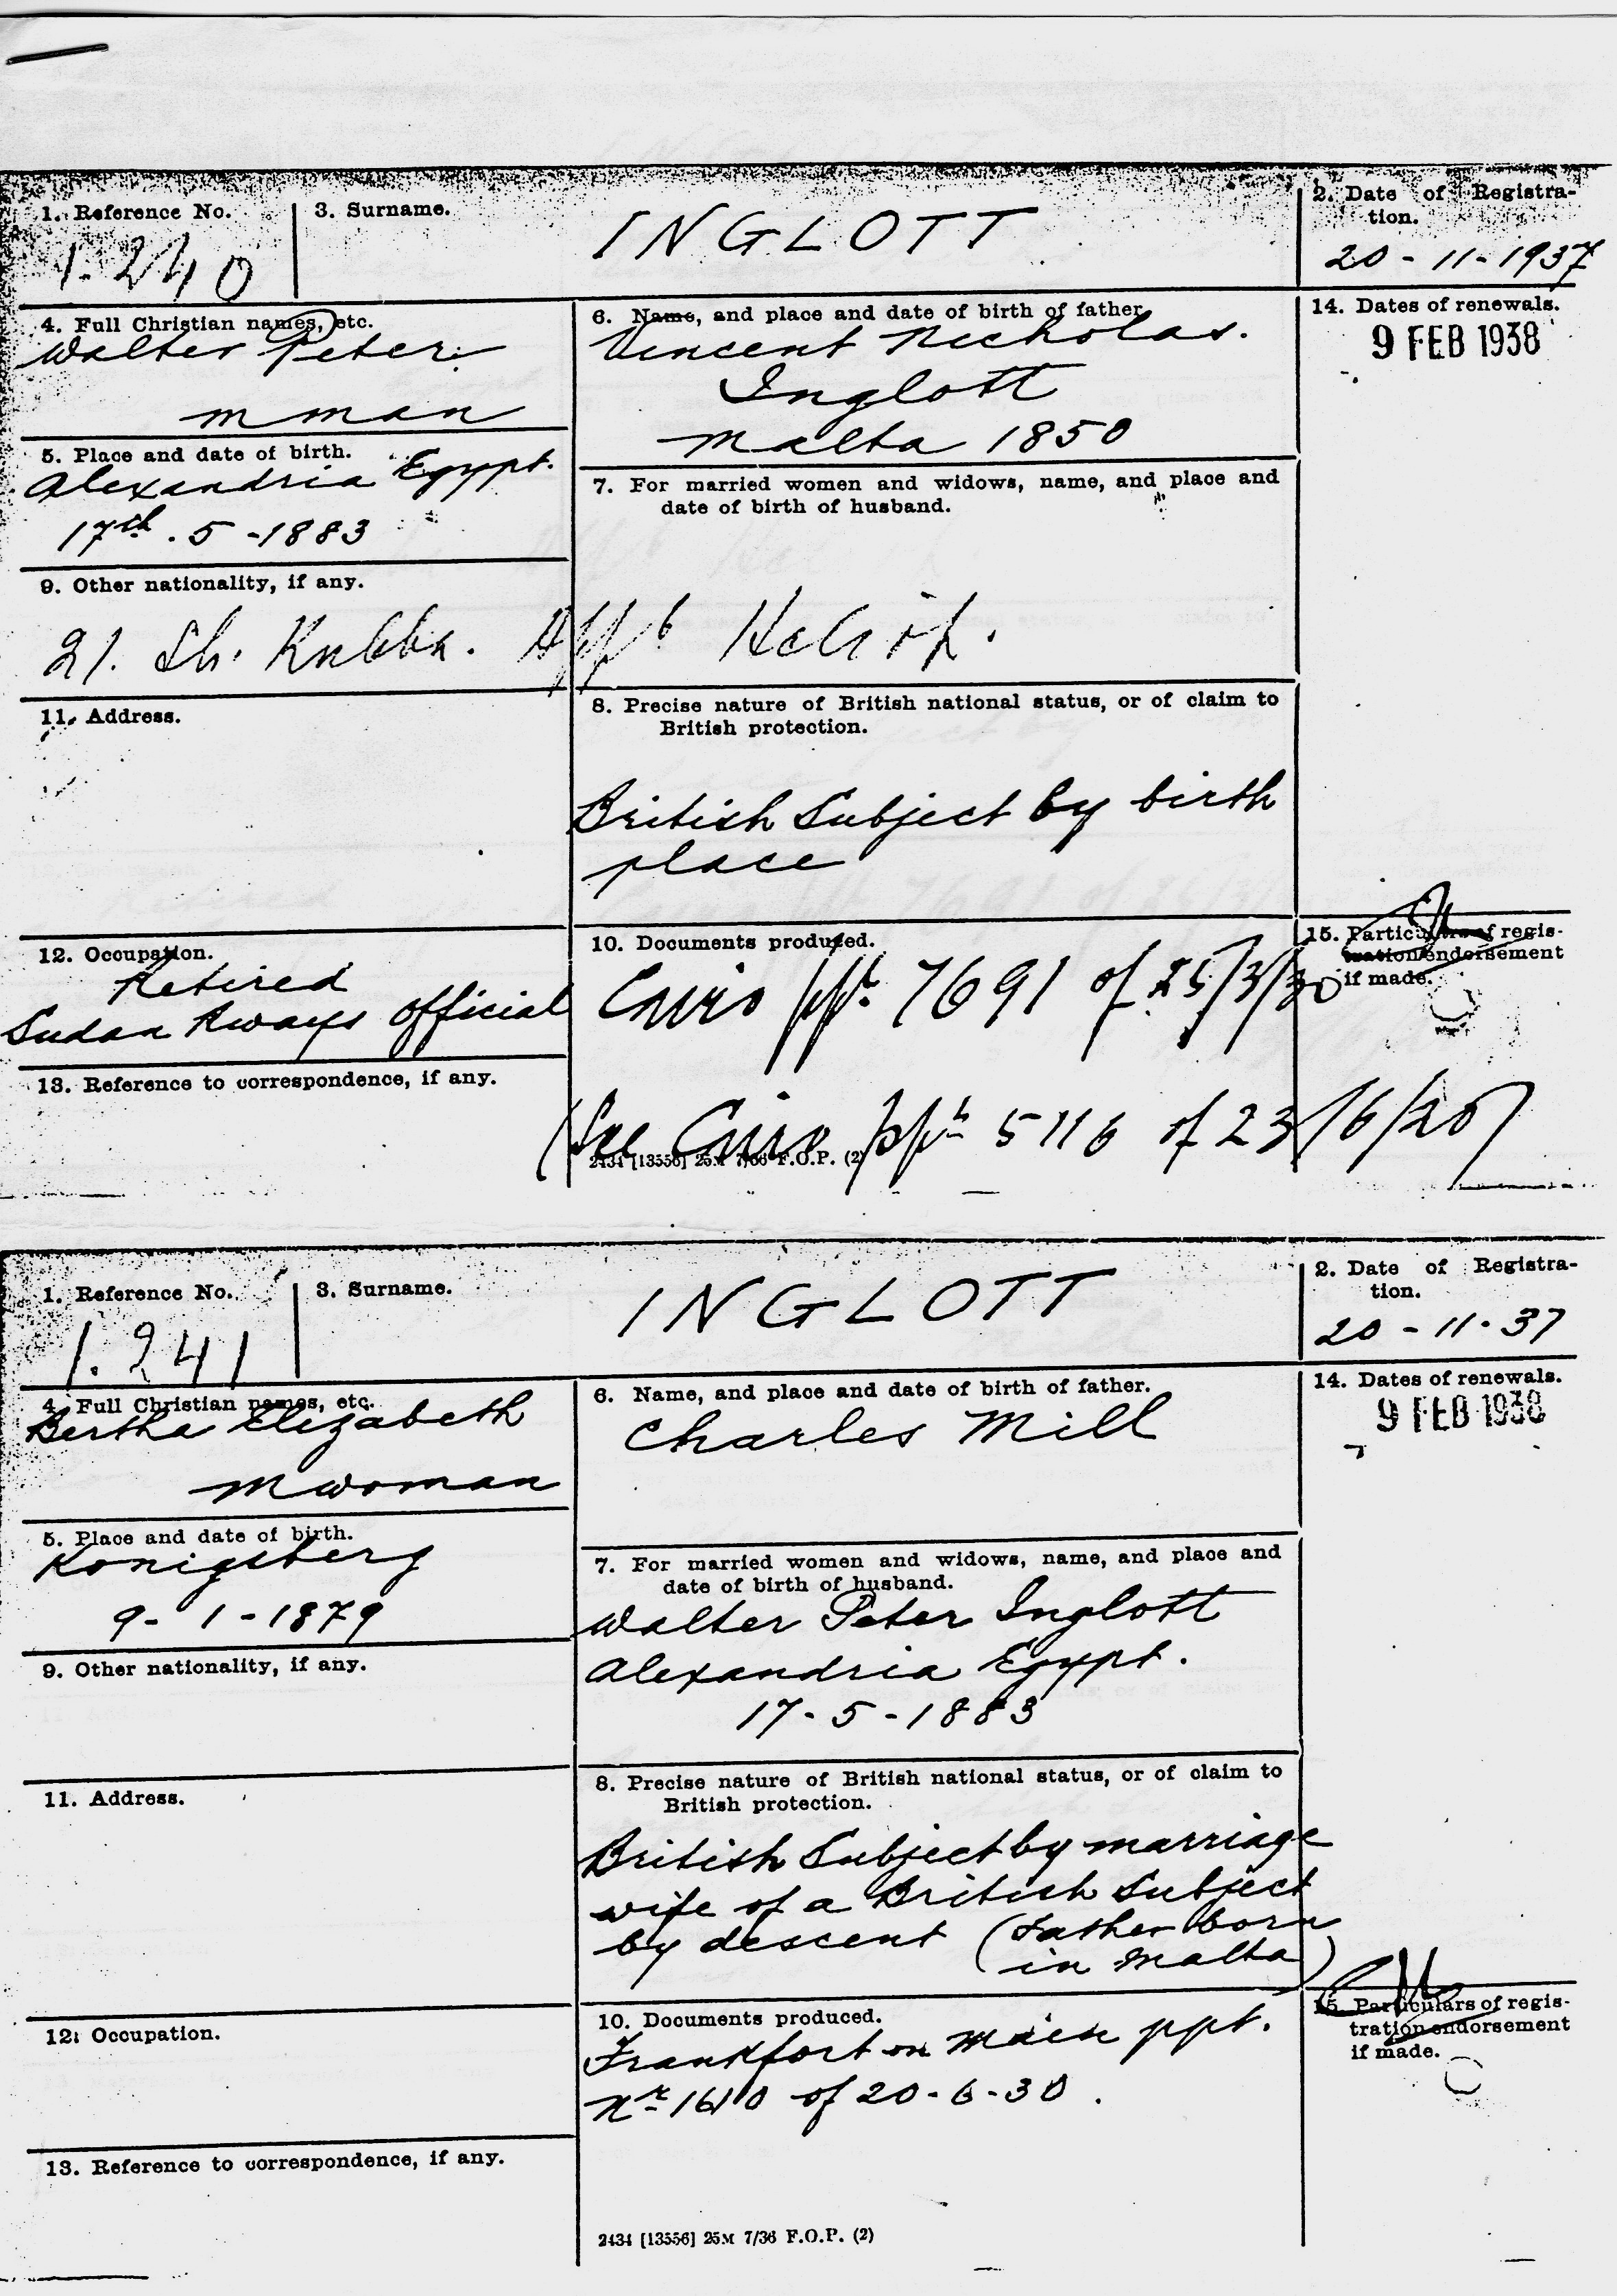 1. Reference No.
1.240
3. Surname.
INGLOTT
2. Date of Registra-
tion.
20 - 11 - 1937
4. Full Christian names, etc.
Walter Peter
m man
5. Place and date of birth.
Alexandria Egypt.
17th. 5 - 1883
9. Other nationality, if any.
21. Sh. Kubba. App 6 Heliop.
11. Address.
12. Occupation.
Retired
Sudan Rways official
13. Reference to correspondence, if any.
6. Name, and place and date of birth of father.
Vincent Nicholas.
Inglott
Malta 1850
7. For married women and widows, name, and place and
date of birth of husband.
8. Precise nature of British national status, or of claim to
British protection.
British Subject by birth
place
10. Documents produced.
Cairo ppt. 7691 of 25/3/30
(See Cairo ppt 5116 of 23/6/25)
2434 [13556] 25M 7/36 F.O.P. (2)
14. Dates of renewals.
9 FEB 1938
15. Particulars of regis-
tration endorsement
if made.
1. Reference No.
1.241
3. Surname.
INGLOTT
2. Date of Registra-
tion.
20 - 11 - 37
4. Full Christian names, etc.
Bertha Elizabeth
m woman
5. Place and date of birth.
Konigsberg
9 - 1 - 1879
9. Other nationality, if any.
11. Address.
12. Occupation.
13. Reference to correspondence, if any.
6. Name, and place and date of birth of father.
Charles Mill
7. For married women and widows, name, and place and
date of birth of husband.
Walter Peter Inglott
Alexandria Egypt.
17 - 5 - 1883
8. Precise nature of British national status, or of claim to
British protection.
British Subject by marriage
wife of a British Subject
by descent (father born
in Malta)
10. Documents produced.
Frankfort on Main ppt.
Nr 1610 of 20 - 6 - 30.
2434 [13556] 25M 7/36 F.O.P. (2)
14. Dates of renewals.
9 FEB 1938
15. Particulars of regis-
tration endorsement
if made.